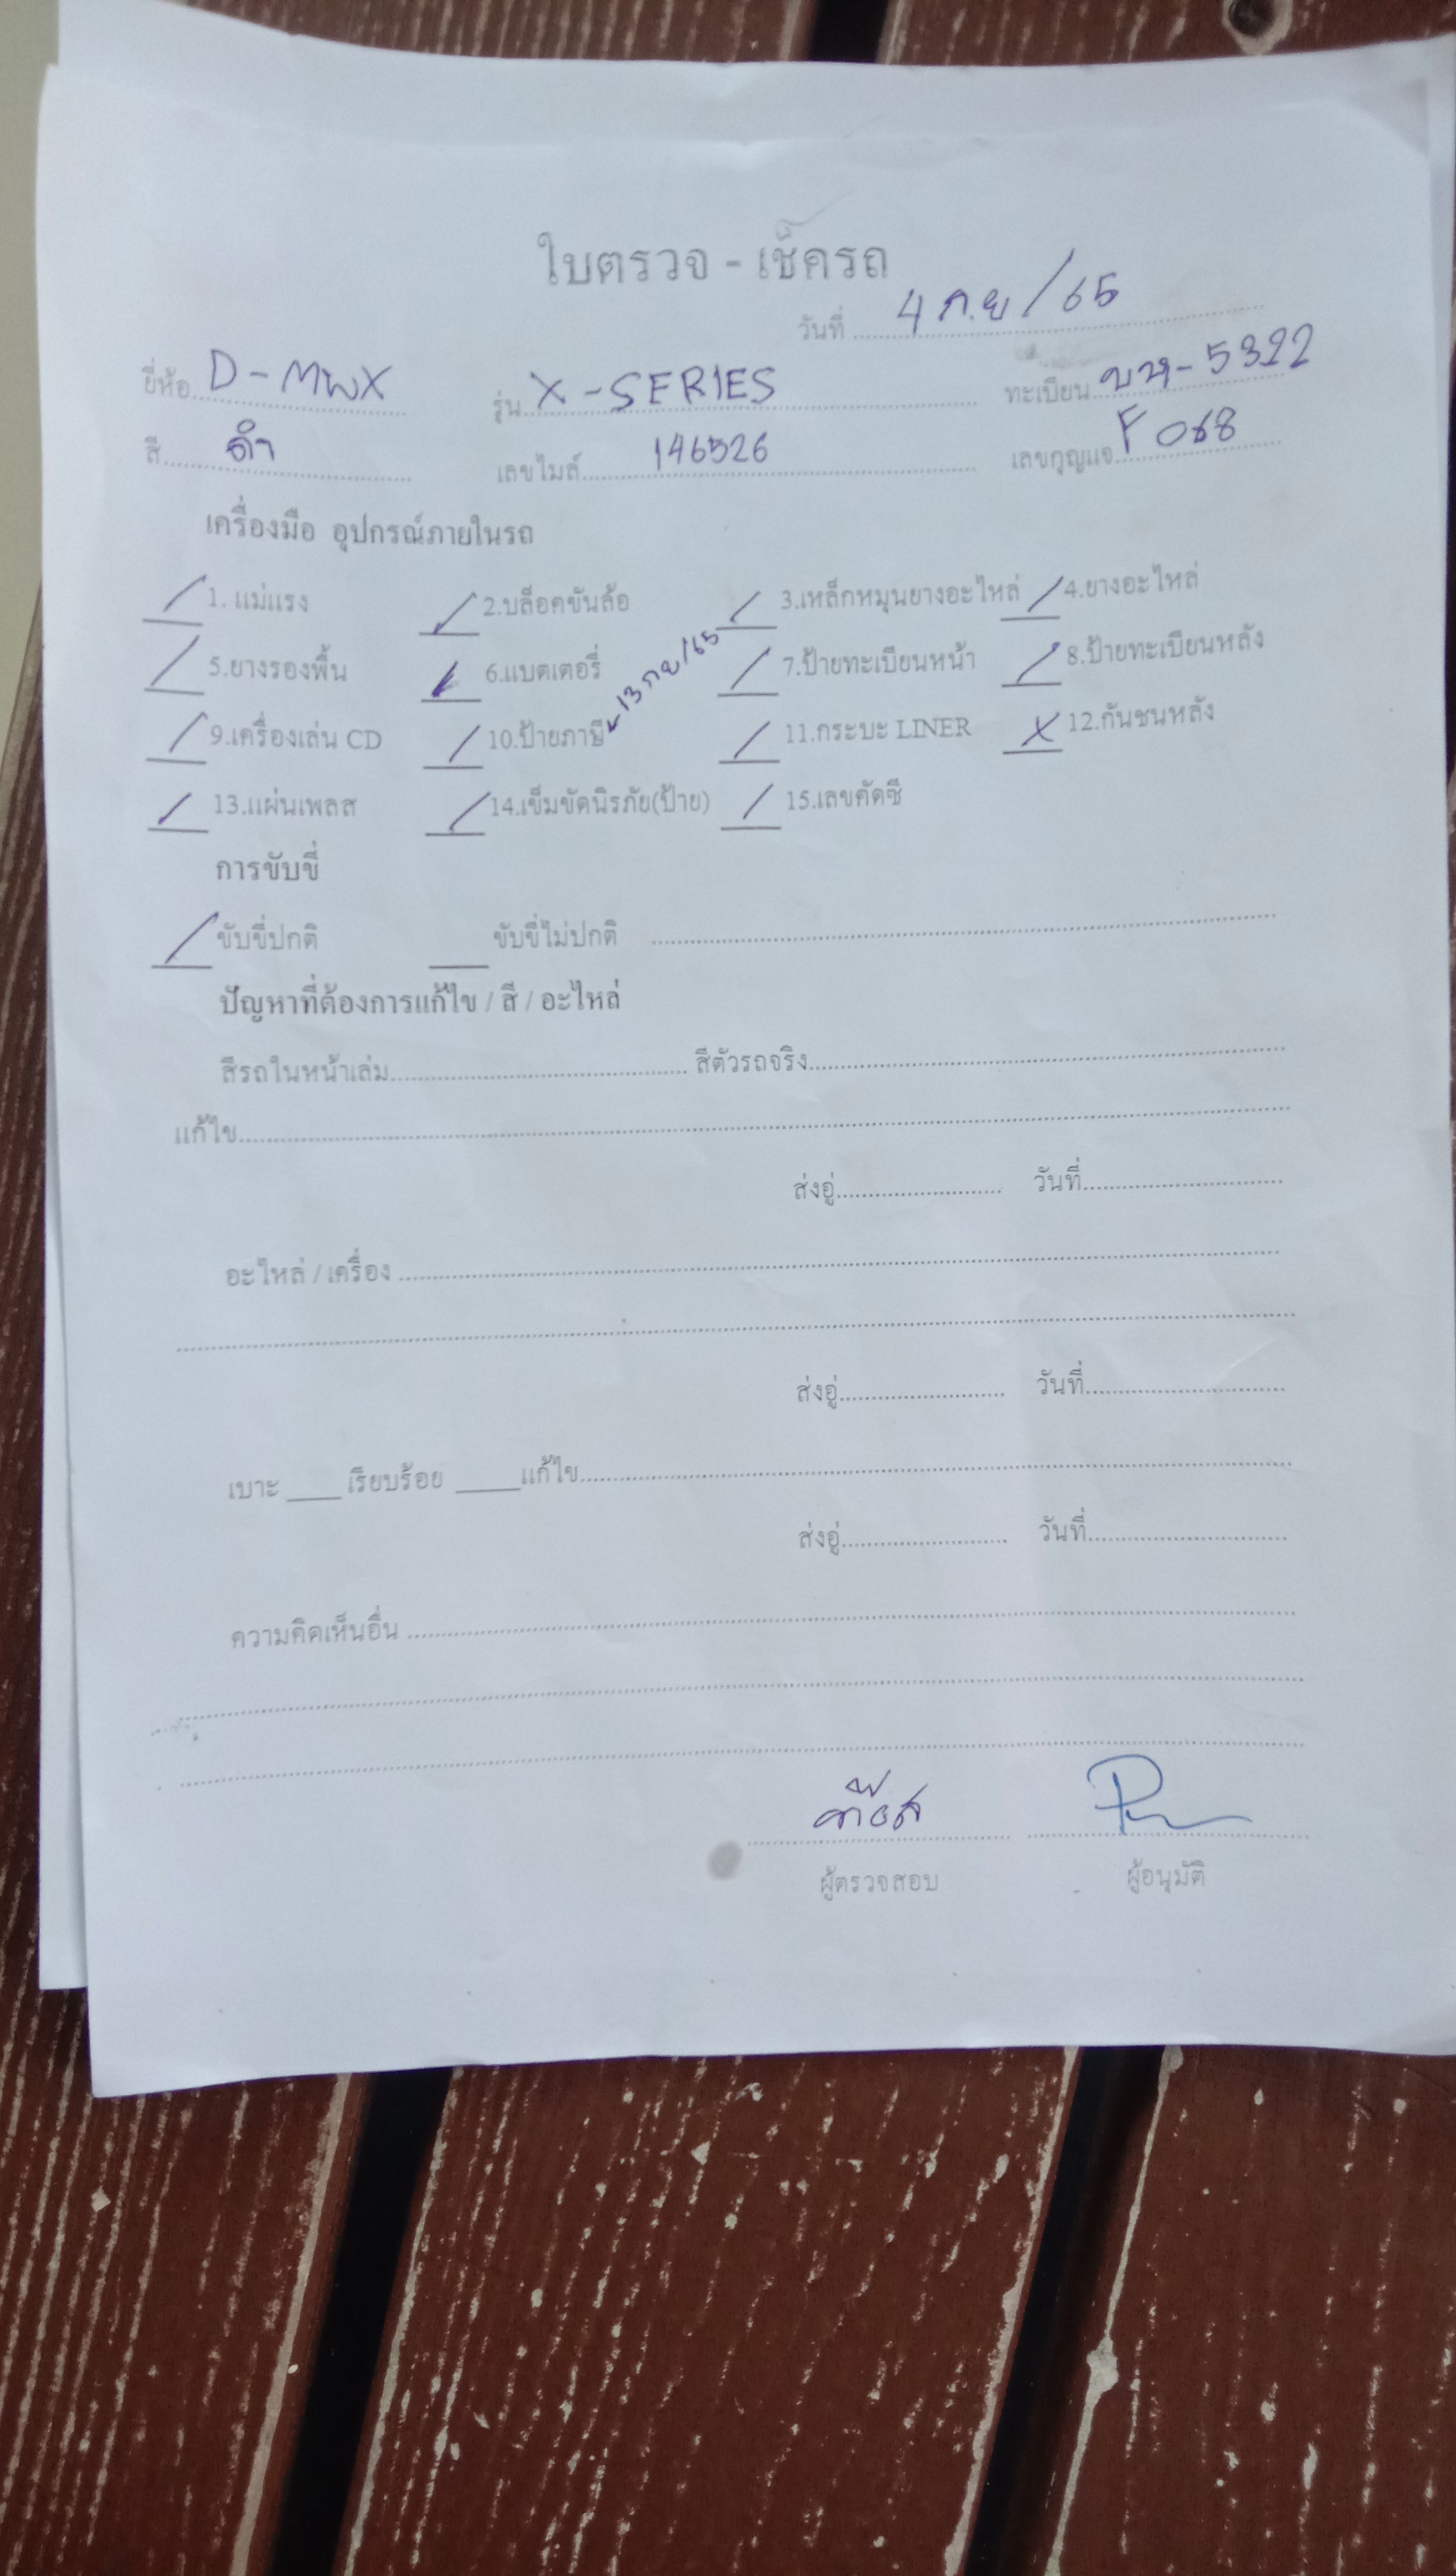 ใบตรวจ - เช็ครถ
วันที่ 4 ก.ย/65
ยี่ห้อ D-MAX รุ่น X-SERIES ทะเบียน 5322
สี ดำ เลขไมล์ 146526 เลขกุญแจ F 068
เครื่องมือ อุปกรณ์ภายในรถ
/ 1. แม่แรง / 2.บล็อคขันล้อ / 3.เหล็กหมุนยางอะไหล่ / 4.ยางอะไหล่
/ 5.ยางรองพื้น / 6.แบตเตอรี่ / 7.ป้ายทะเบียนหน้า / 8.ป้ายทะเบียนหลัง
/ 9.เครื่องเล่น CD / 10.ป้ายภาษี 13 กย/65 / 11.กระบะ LINER X 12.กันชนหลัง
/ 13.แผ่นเพลส / 14.เข็มขัดนิรภัย(ป้าย) / 15.เลขคัดซี
การขับขี่
/ ขับขี่ปกติ ขับขี่ไม่ปกติ
ปัญหาที่ต้องการแก้ไข / สี / อะไหล่
สีรถในหน้าเล่ม สีตัวรถจริง
แก้ไข
ส่งอู่ วันที่
อะไหล่ / เครื่อง
ส่งอู่ วันที่
เบาะ เรียบร้อย แก้ไข
ส่งอู่ วันที่
ความคิดเห็นอื่น
ผู้ตรวจสอบ ผู้อนุมัติ